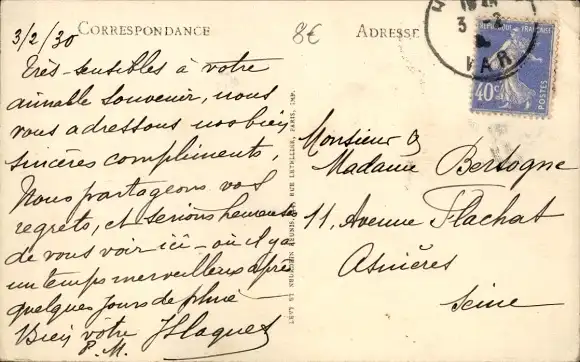 3/2/30
CORRESPONDANCE
Très-sensibles à votre
aimable souvenir, nous
vous adressons nos bien
sincères compliments,
Nous partageons vos
regrets, et serions heureuses
de vous voir ici - où il y a
un temps merveilleux après
quelques jours de pluie
Bien vôtre
P. M.
8€
ADRESSE
3 - 2
VAR
RÉPUBLIQUE FRANÇAISE
40c
POSTES
Monsieur &
Madame Bersogne
11, Avenue Flachat
Asnières
Seine
LÉVY ET NEURDEIN RÉUNIS, RUE LETELLIER, PARIS, IMP.